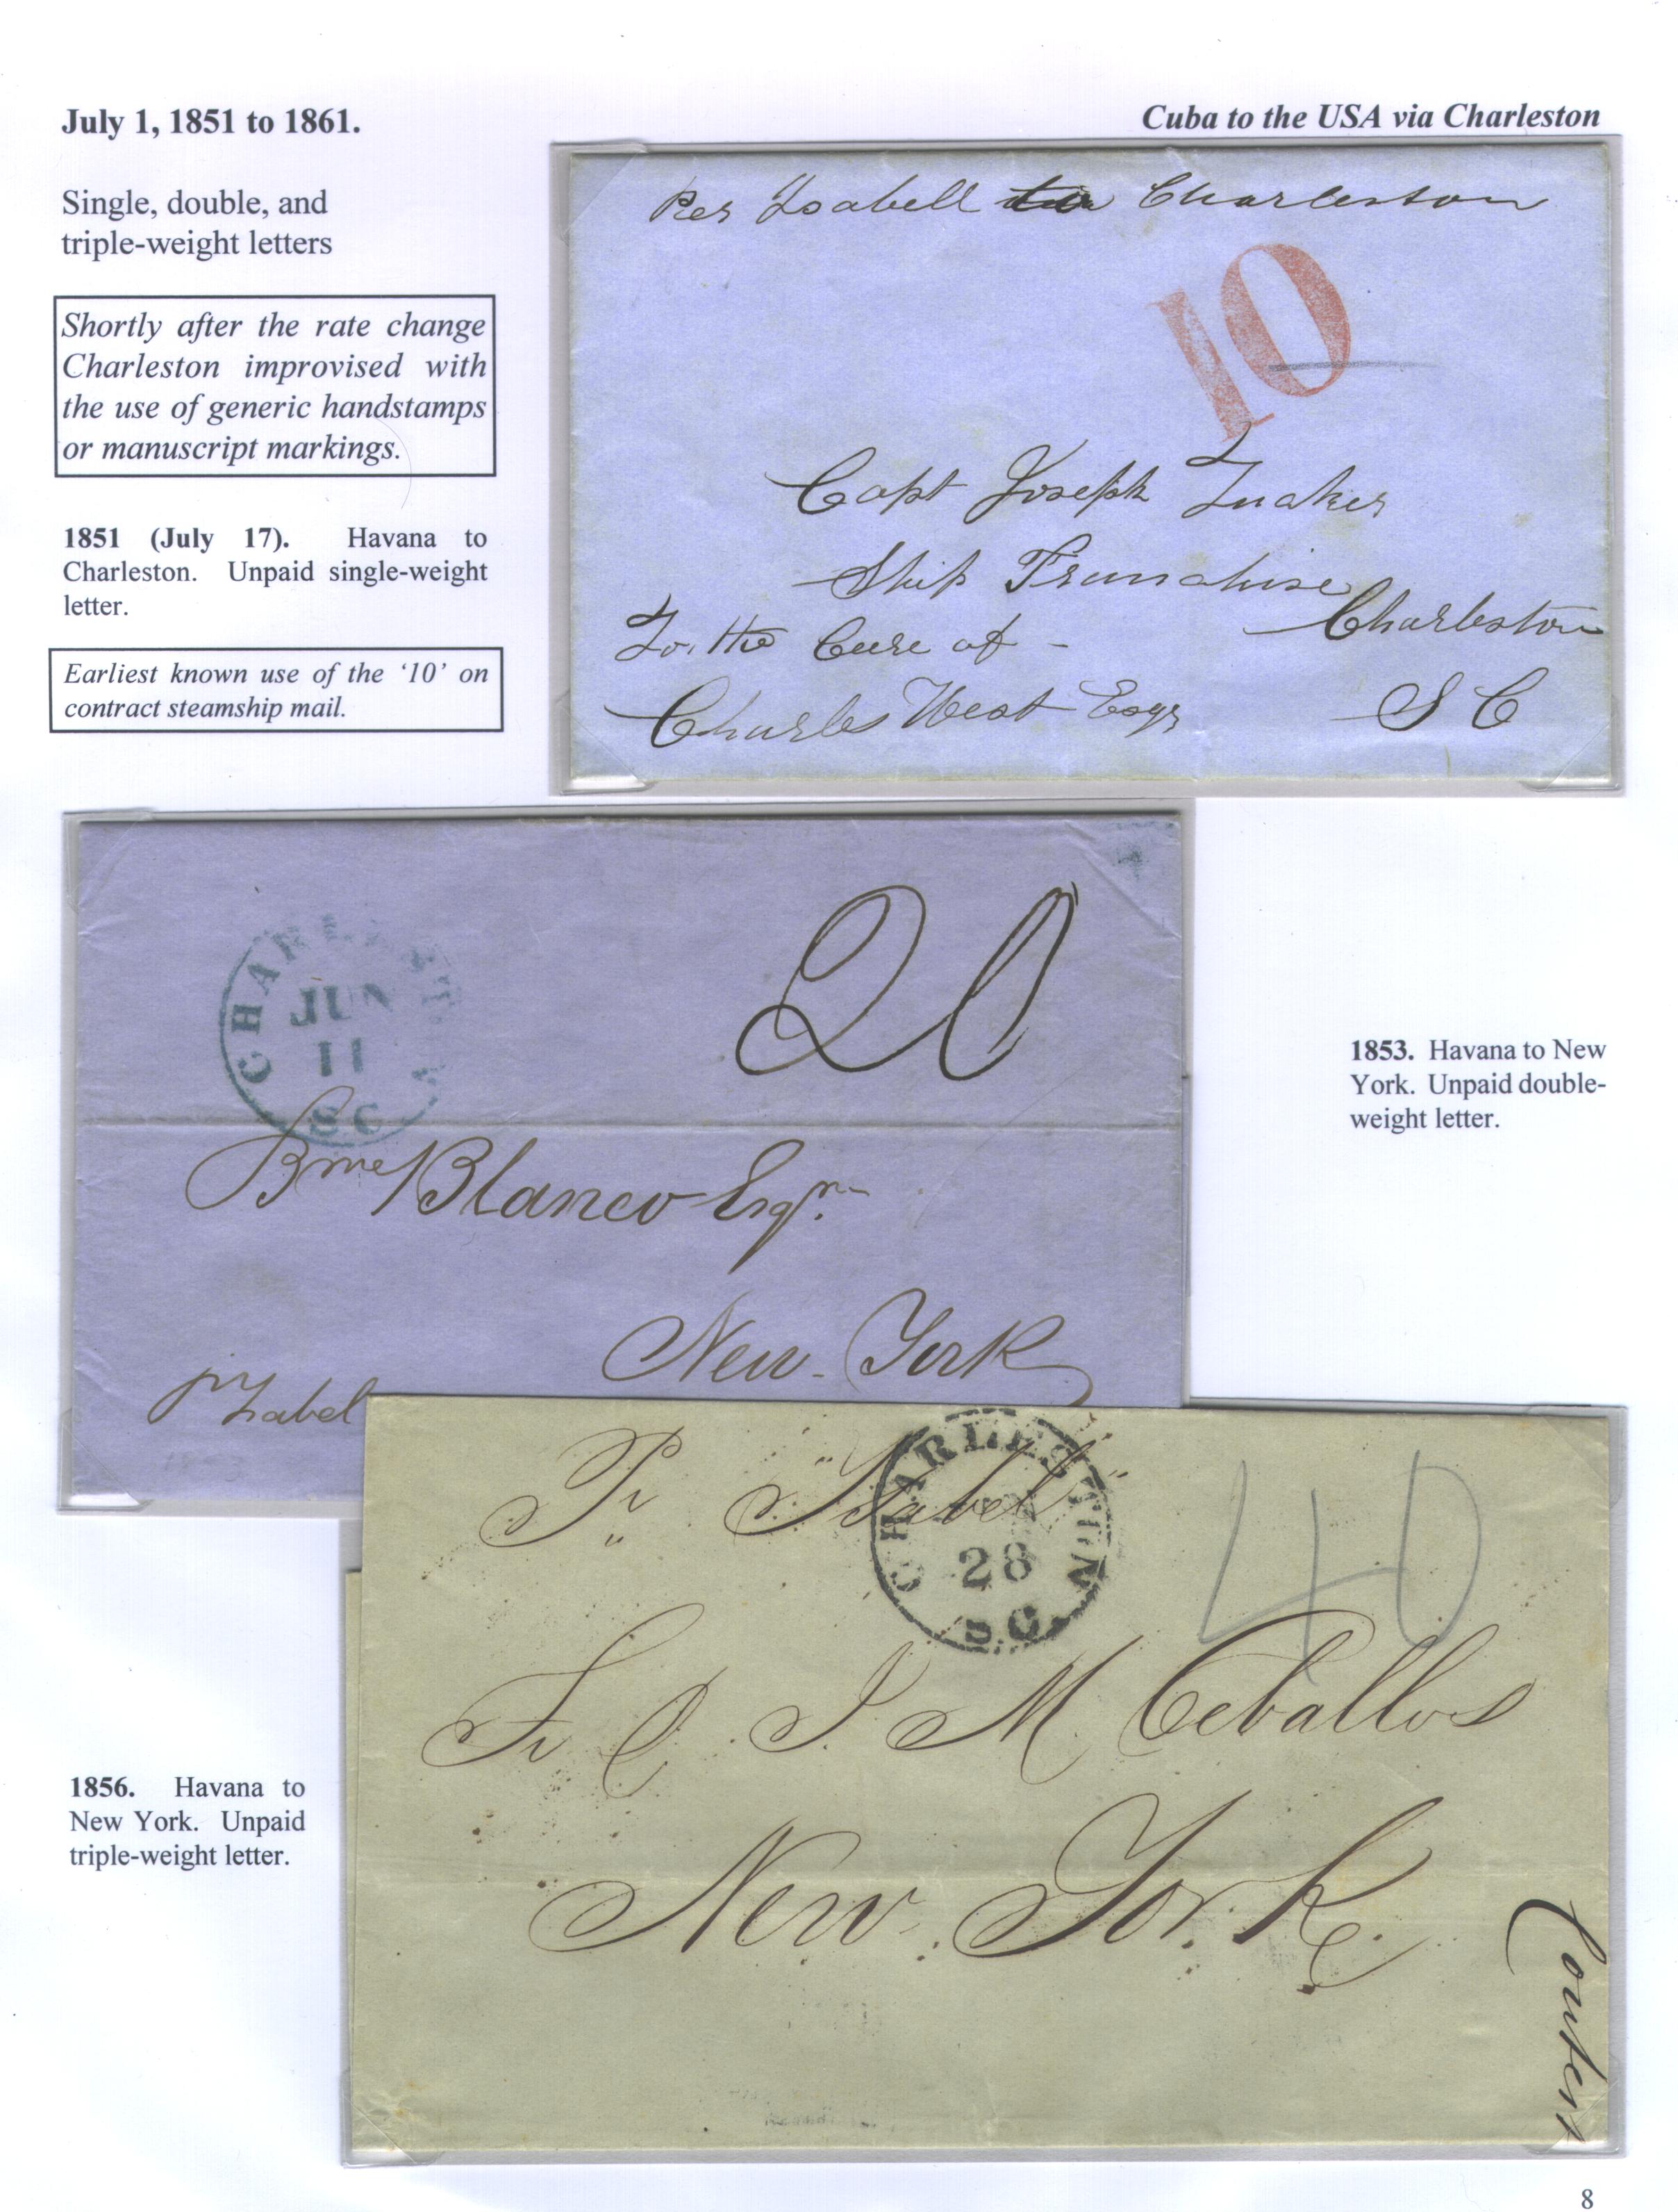 July 1, 1851 to 1861.
Cuba to the USA via Charleston
Single, double, and
triple-weight letters
Shortly after the rate change
Charleston improvised with
the use of generic handstamps
or manuscript markings.
1851 (July 17). Havana to
Charleston. Unpaid single-weight
letter.
Earliest known use of the ‘10’ on
contract steamship mail.
Per Isabell Charleston
10
Capt Joseph Tucker
Ship
To the Care of -
Charleston
Charles West Esqr
S C
20
CHARLESTON
JUN
11
SC
Bme Blanco Esqr.
New-York
pr Isabel
1853. Havana to New
York. Unpaid double-
weight letter.
Pr "Isabel"
CHARLESTON
28
S.C.
40
Sr D J. M. Ceballos
New York.
1856. Havana to
New York. Unpaid
triple-weight letter.
8